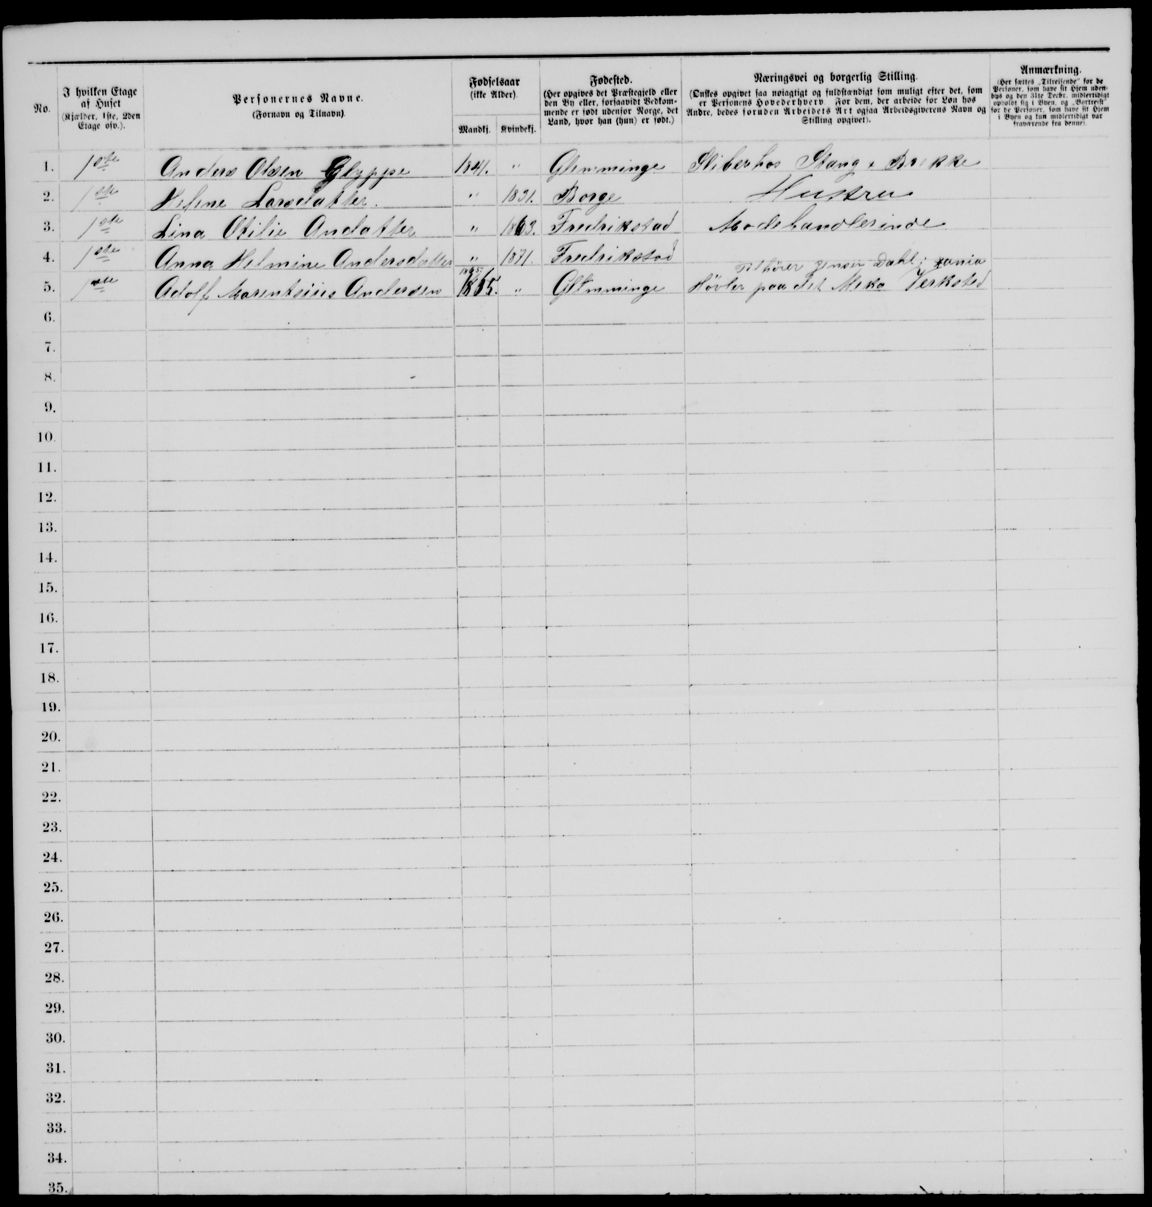 No.
I hvilken Etage
af Huset
(Kjælder, 1ste, 2den
Etage osv.).
Personernes Navne.
(Fornavn og Tilnavn).
Fødselsaar
(ikke Alder).
Mandkj. Kvindekj.
Fødested.
(Her opgives det Præstegjeld eller
den By eller, forsaavidt Vedkom-
mende er født udenfor Norge, det
Land, hvor han (hun) er født.)
Næringsvei og borgerlig Stilling.
(Ønskes opgivet saa nøiagtigt og fuldstændigt som muligt efter det, som
er Personens Hovederhverv. For dem, der arbeide for Løn hos
Andre, bedes foruden Arbeidets Art ogsaa Arbeidsgiverens Navn og
Stilling opgivet).
Anmærkning.
(Her sættes „Tilreisende" for de
Personer, som have sit Hjem uden-
bys og den 31te Decbr. midlertidigt
opholdt sig i Byen, og „Bortreist"
for de Personer, som have sit Hjem
i Byen og kun midlertidigt var
fraværende fra denne).
1. 1ste Anders Olsen Glyppe 1841. " Glemminge Sliberhos Stang & Brekke
2. 1ste Helene Larsdatter. " 1831. Borge Hustru
3. 1ste Lina Otilie Andatter " 1863. Fredrikstad Modehandlerinde
4. 1ste Anna Helmine Andersdatter " 1871. Fredrikstad
tilhører Jensen Dahl,
5. 1ste Adolf Andersen " Glemminge Høvler paa det Mek. Verksted
6.
7.
8.
9.
10.
11.
12.
13.
14.
15.
16.
17.
18.
19.
20.
21.
22.
23.
24.
25.
26.
27.
28.
29.
30.
31.
32.
33.
34.
35.